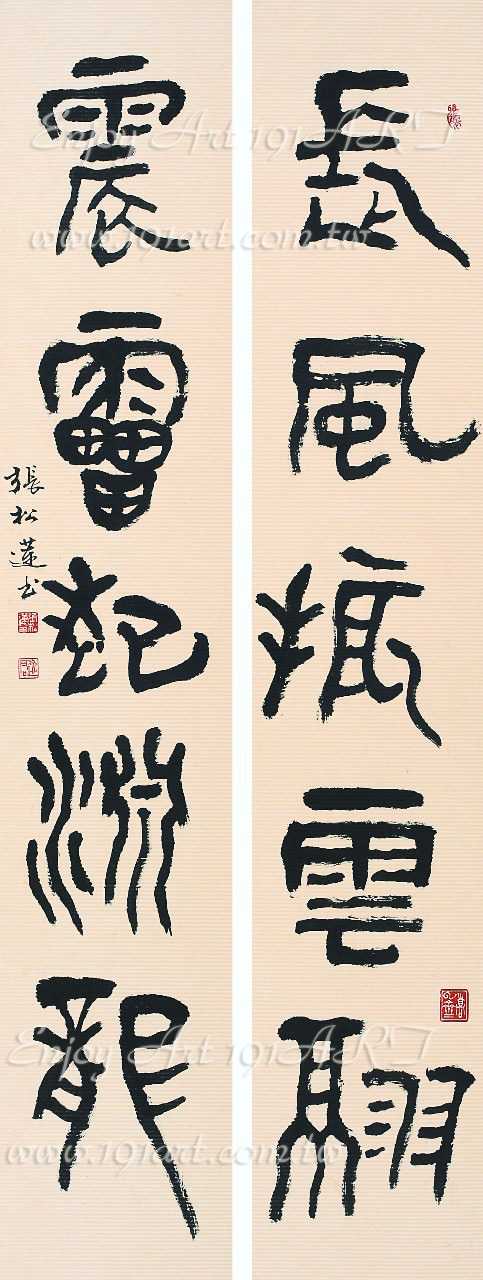 長風振雲翮
震雷起淵龍
張松蓮書
Enjoy Art 191ART
www.191art.com.tw
Enjoy Art 191ART
www.191art.com.tw